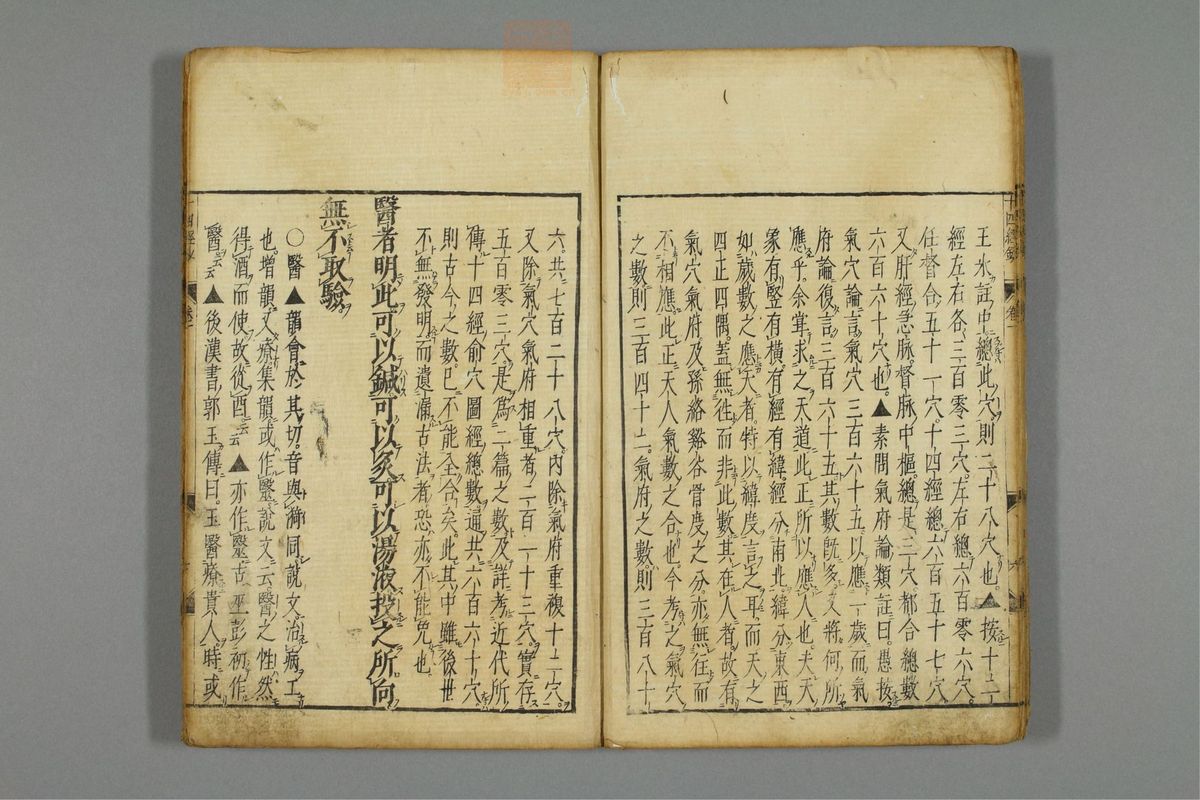 王氷註中總此穴則二十八穴也▲按十二
經左右各三百零三穴左右總六百零六穴
任督合五十一穴十四經總六百五十七穴
又肝經急脉督脉中樞總是三穴都合總數
六百六十穴也▲素問氣府論類註曰愚按
氣穴論言氣穴三百六十五以應一歲而氣
府論復言三百六十五其數旣多又將何所
應乎余甞求之天道此正所以應人也夫天
象有竪有橫有經有緯經分南北緯分東西
如歲數之應天者特以緯度言之耳而天之
四正四隅蓋無徃而非此數其在人者故有
氣穴氣府及孫絡谿谷骨度之分亦無徃而
不相應此正天人氣數之合也今考之氣穴
之數則三百四十二氣府之數則三百八十
六共七百二十八穴內除氣府重複十二穴
又除氣穴氣府相重者二百一十三穴實存
五百零三穴是爲二篇之數及詳考近代所
傳十四經俞穴圖經總數通共六百六十穴
則古今之數已不能全合矣此其中雖後世
不無發明而遺漏古法者恐亦不能免也
醫者明此可以鍼可以灸可以湯液投之所向
無不取驗
○醫▲韻會於其切音與漪同說文治病工
也增韻又療集韻或作毉說文云醫之性然
得酒而使故從酉云云▲亦作毉古巫彭初作
醫云云▲後漢書郭玉傳曰玉醫療貴人時或
十四經
卷一